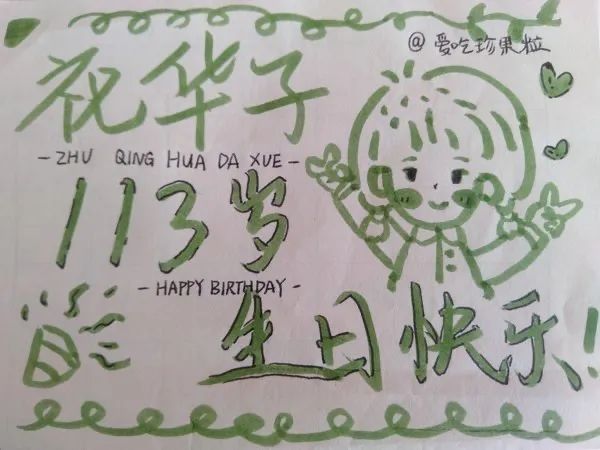 @爱吃珍果粒
祝华子
- ZHU QING HUA DA XUE -
113岁
- HAPPY BIRTHDAY -
生日快乐!